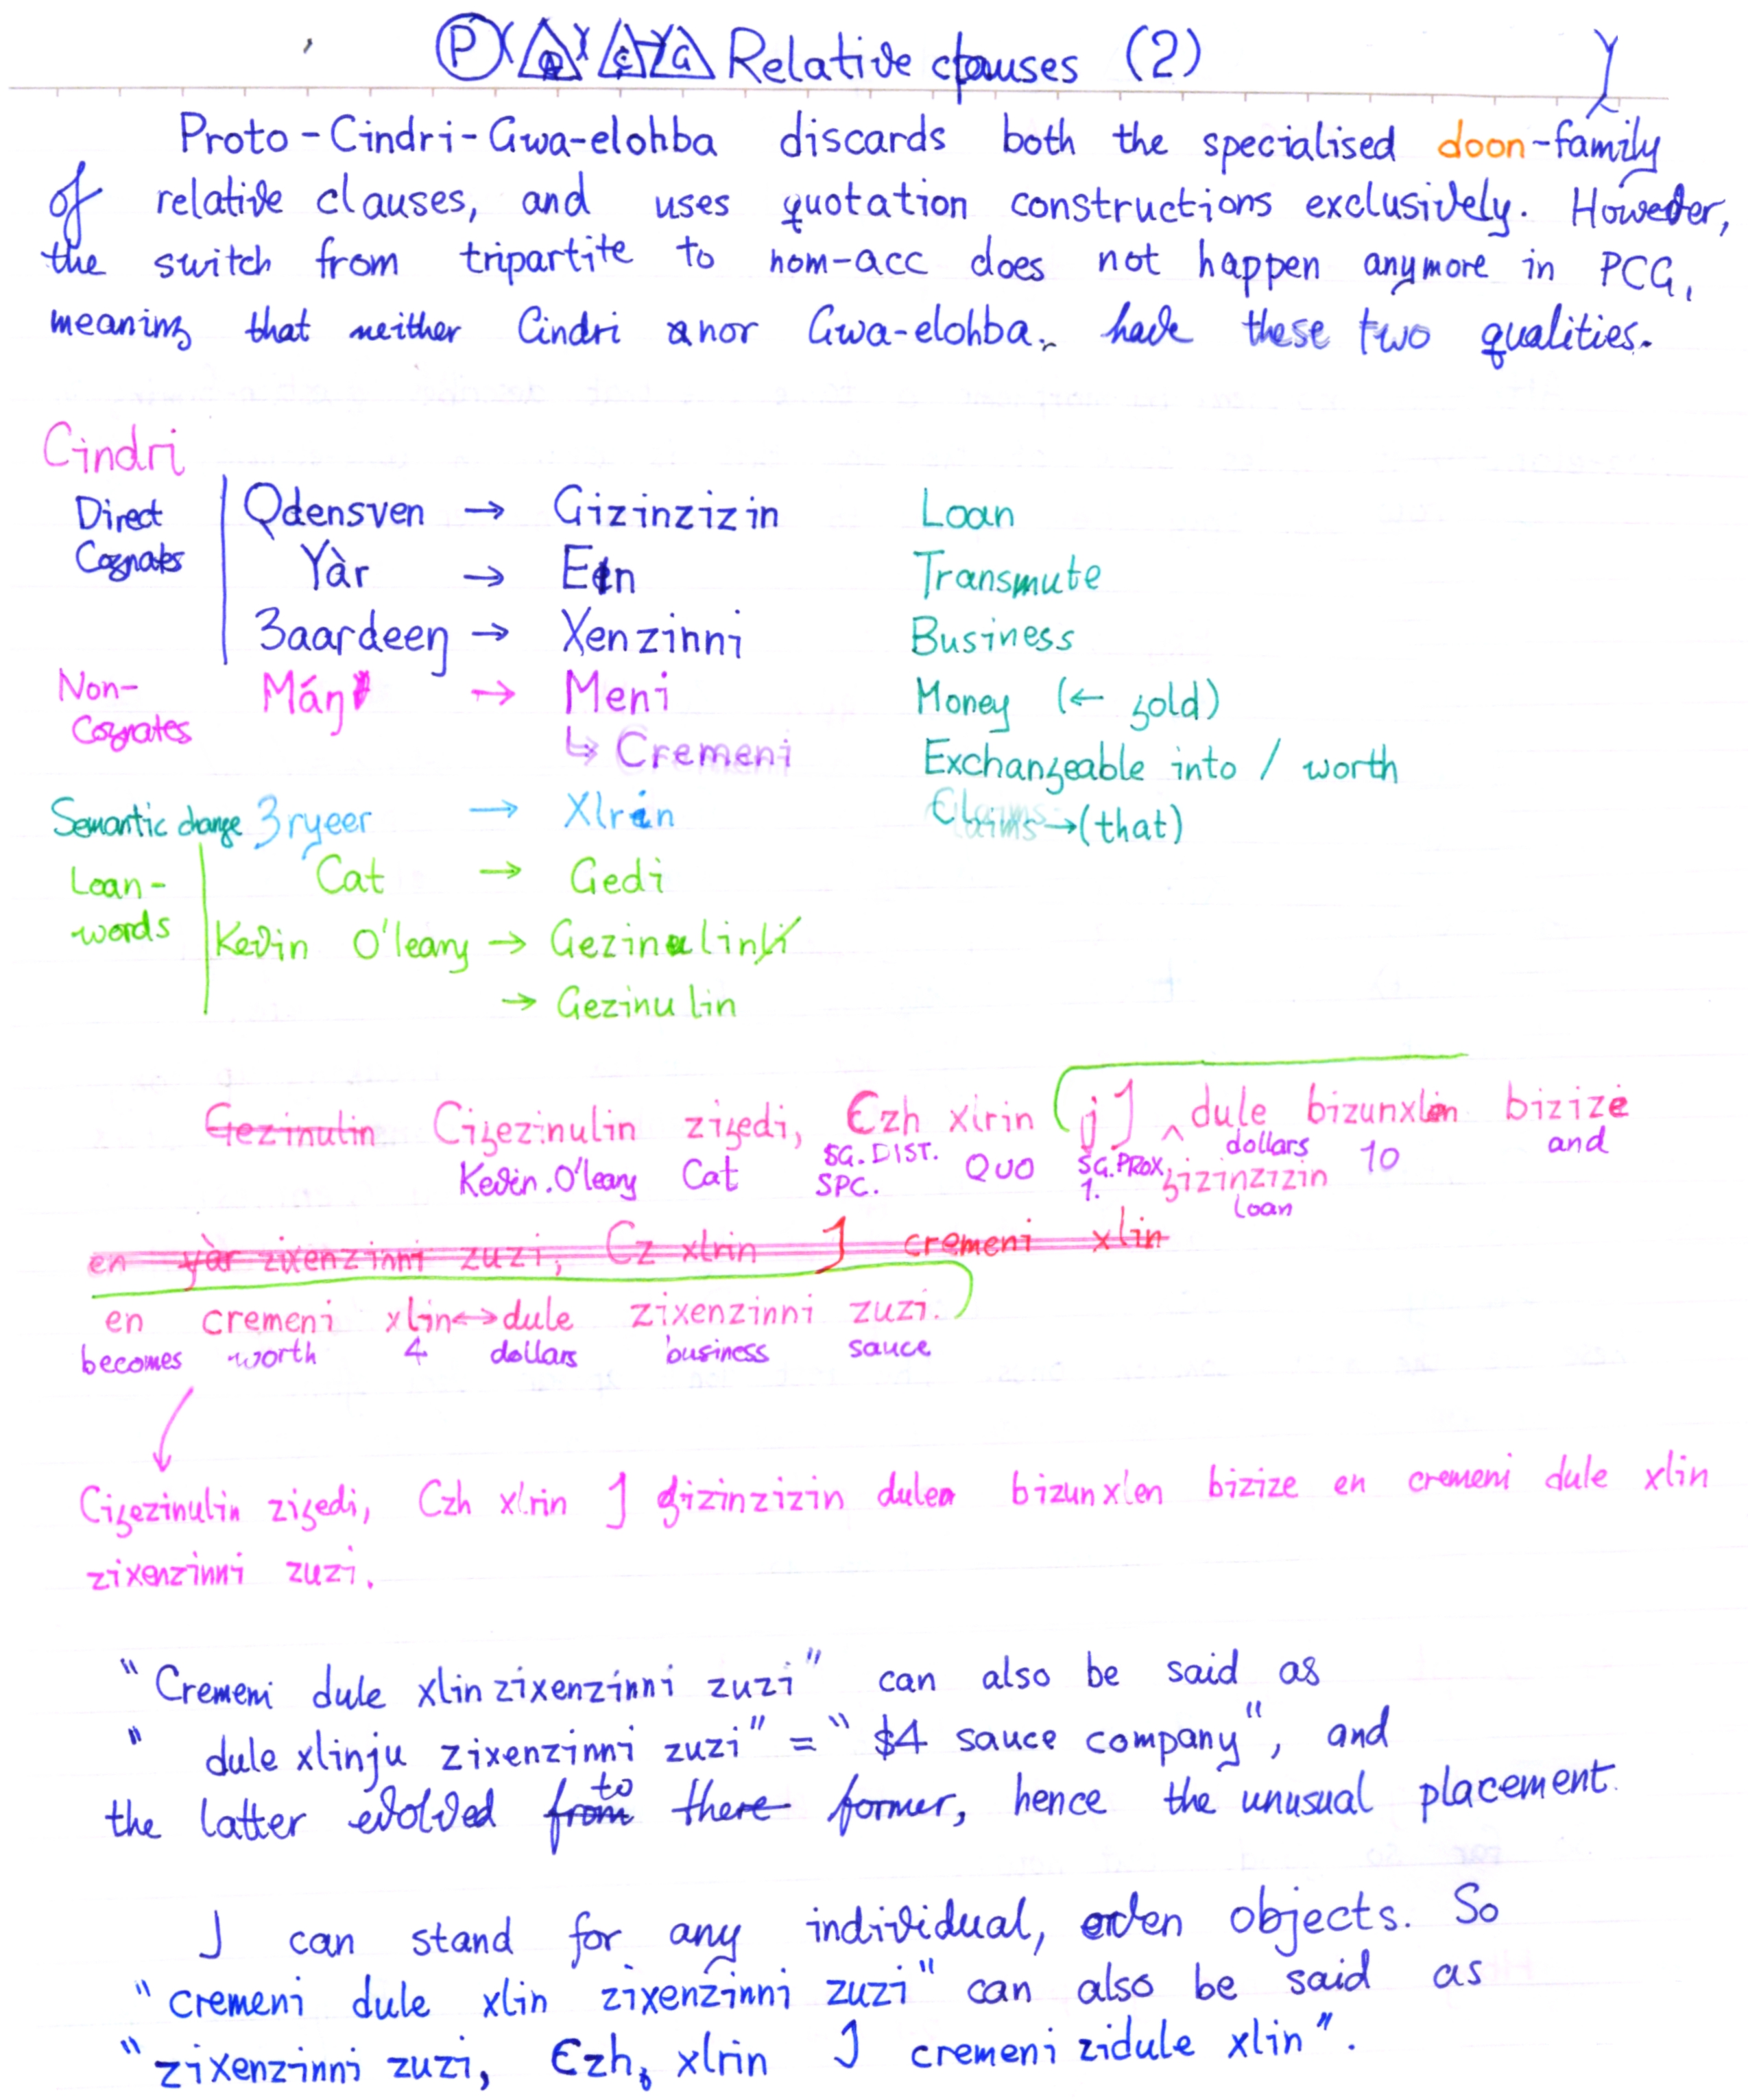 P Relative clauses (2)
Proto-Cindri-Gwa-elohba discards both the specialised doon-family
of relative clauses, and uses quotation constructions exclusively. However,
the switch from tripartite to nom-acc does not happen anymore in PCG,
meaning that neither Cindri nor Gwa-elohba have these two qualities.
Cindri
Direct Cognates
Qdensven → Gizinzizin Loan
Yàr → En Transmute
Ʒaardeeŋ → Xenzinni Business
Non-Cognates
Máŋ → Meni Money (← gold)
↳ Cremeni Exchangeable into / worth
Semantic change Ʒryeer → Xlrin Claims → (that)
Loan-words
Cat → Gedi
Kevin O'leary → Gezinulinli
→ Gezinulin
Gezinulin Cigezinulin zigedi, Czh xlrin J dule bizunxlen bizize
Kevin.O'leary Cat SG.DIST. SPC. QUO SG.PROX. 1. gizinzizin loan dollars 10 and
en yàr zixenzinni zuzi, Cz xlrin J cremeni xlin
en cremeni xlin↔dule zixenzinni zuzi.
becomes worth 4 dollars business sauce
Cigezinulin zigedi, Czh xlrin J gizinzizin dule bizunxlen bizize en cremeni dule xlin
zixenzinni zuzi.
"Cremeni dule xlin zixenzinni zuzi" can also be said as
"dule xlinju zixenzinni zuzi" = "$4 sauce company", and
the latter evolved from to there former, hence the unusual placement.
J can stand for any individual, even objects. So
"cremeni dule xlin zixenzinni zuzi" can also be said as
"zixenzinni zuzi, Czh, xlrin J cremeni zidule xlin".